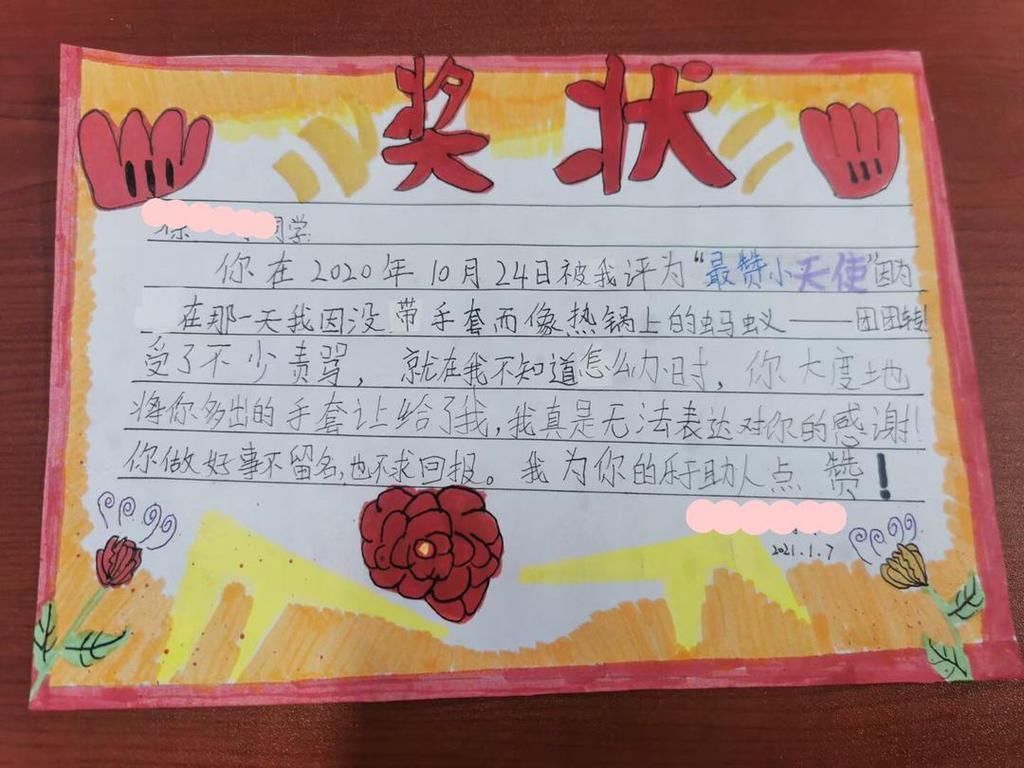 奖状
同学:
你在2020年10月24日被我评为“最赞小天使”因为
在那一天我因没带手套而像热锅上的蚂蚁——团团转!
受了不少责骂，就在我不知道怎么办时，你大度地
将你多出的手套让给了我，我真是无法表达对你的感谢！
你做好事不留名，也不求回报。我为你的乐于助人点赞！
2021.1.7